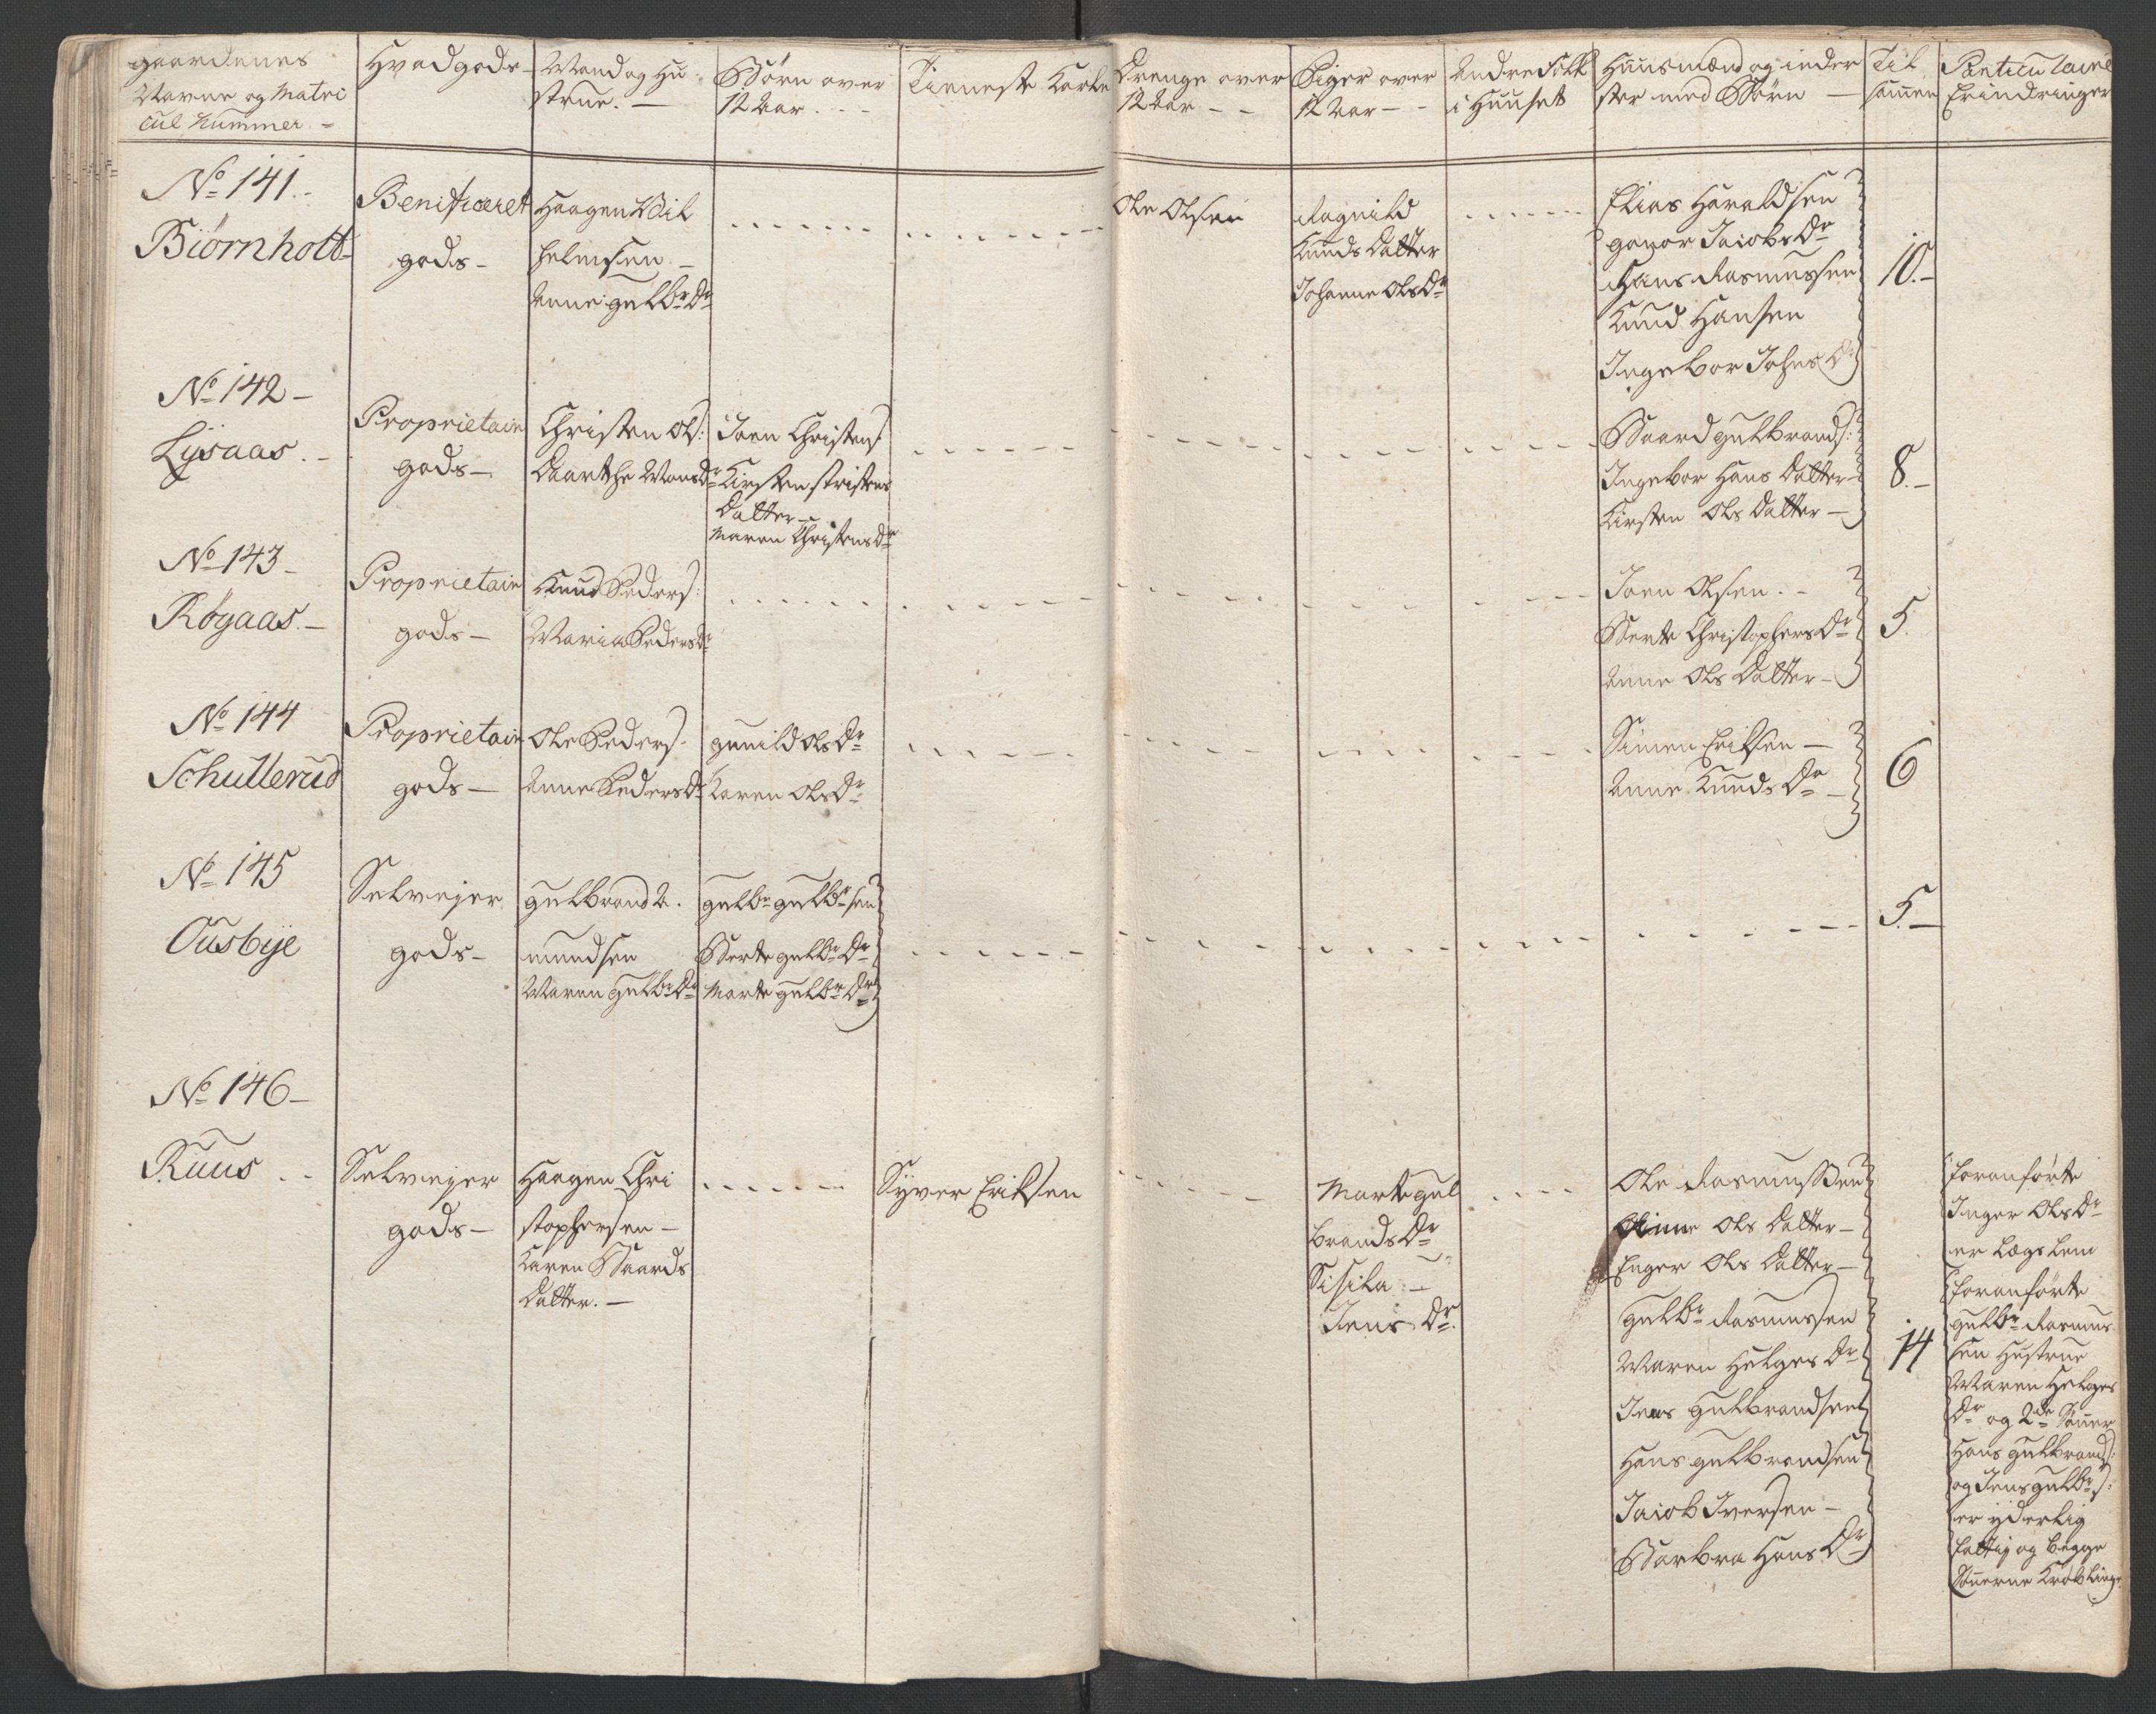 gaardenes
Navne og Matri
cul Nummer. -
Hvad gods
Mand og Hu
strue. -
Børn over
12 Aar . . -
Tieneste Karle
Drenge over
12 Aar - -
Piger over
12 Aar - -
Andre Folk
i Huuset
Huusmænd og inder
ster med Børn -
Til
sammen
Particulaire
Erindringer
No 141. -
Biörnholt -
Benificeret
gods -
Haagen Wil
helmsen -
Anne gulbr Dr
Ole Olsen
Ragnild
Knuds Datter
Johanne Ols Dr
Elias Haraldsen
gonor Jacobs Dr
Hans Rasmussen
Knud Hansen
Ingebor Johns Dr
10. -
No 142 -
Lÿsaas. -
Proprietair
gods -
Christen Ols:
Marthe Mons Dr
Joen Christens
Kirsten Cristens
Datter -
Maren Christens Dr
Baard gulbrands:
Ingebor Hans Datter -
Kirsten Ols Datter -
8. -
No 143 -
Röyaas. -
Proprietair
gods -
Knud Peders:
Maria Peders Dr
Joen Olsen. -
Berte Christophers Dr
Anne Ols Datter -
5.
No 144
Schullerud
Proprietair
gods -
Ole Peders.
Anne Peders Dr
gunild Ols Dr
Karen Ols Dr
Simen Eriksen -
Anne Knuds Dr -
6
No 145
Ousbÿe
Selvejer
gods -
gulbrand A.
mundsen
Maren gulbr Dr
gulbr gulbrsen
Berte gulbr Dr
Marte gulbr Dr
5. -
No 146 -
Ruus . -
Selvejer
gods -
Haagen Chri
stophersen -
Karen Baards
Datter. -
Syver Eriksen
Marte gul
brands Dr
Sisila -
Jens Dr.
Ole Rasmussen
Ols Datter -
Enger Ols Datter -
gulbr Rasmussen
Maren Helges Dr
Jens gulbrandsen
Hans gulbrandsen
Jacob Iversen -
Barbra Hans Dr
14
foranførte
Inger Ols Dr
er Lægs Lem
foranførte
gulbr Rasmus
sen Hustrue
Maren Helges
Dr og 2de Sønner
Hans gulbrands:
og Jens gulbrs:
er ÿderlig
fattig og begge
Sønnerne Krøblinge